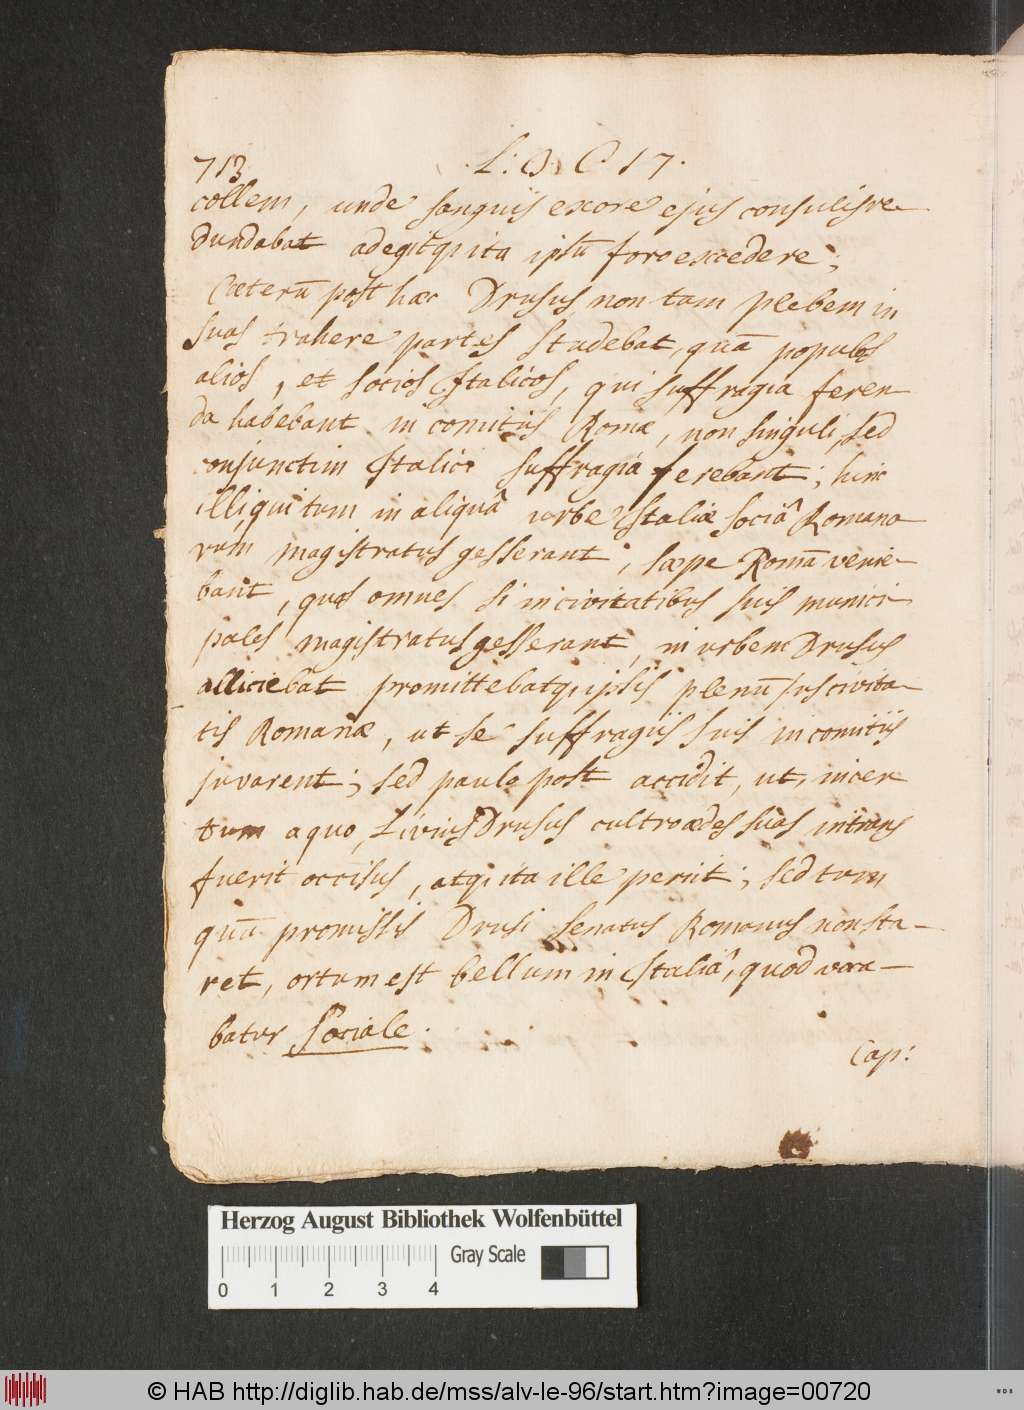 713 L: 3. C. 17.
collem, unde sanguis ex ore ejus consulis re
dundabat adegitq; ita ipsũ foro excedere;
Cæterũ post hæc Drusus, non tam plebem in
suas trahere partes studebat, quã populos
alios, et socios Italicos, qui suffragia feren
da habebant in comitiis Romæ, non singuli, sed
conjunctim Italici suffragia ferebant; hinc
illi qui tum in aliquâ urbe Italiæ sociâ Romano
rum magistratus gesserant, sæpe Romã venie-
bant, quos omnes si in civitatibus suis munici
pales magistratus gesserant, in urbem Drusus
alliciebat promittebatq; ipsis plenũ jus civita-
tis Romanæ, ut se suffragiis suis in comitiis
juvarent; sed paulo post accidit, ut, incer
tum a quo, Livius Drusus cultro ædes suas intrans
fuerit occisus, atq; ita ille periit; sed tum
quũ promissis Drusi senatus Romanus non sta-
ret, ortum est bellum in Italiâ, quod voca-
batur Sociale.
Cap:
Herzog August Bibliothek Wolfenbüttel
Gray Scale
0 1 2 3 4
© HAB http://diglib.hab.de/mss/alv-le-96/start.htm?image=00720